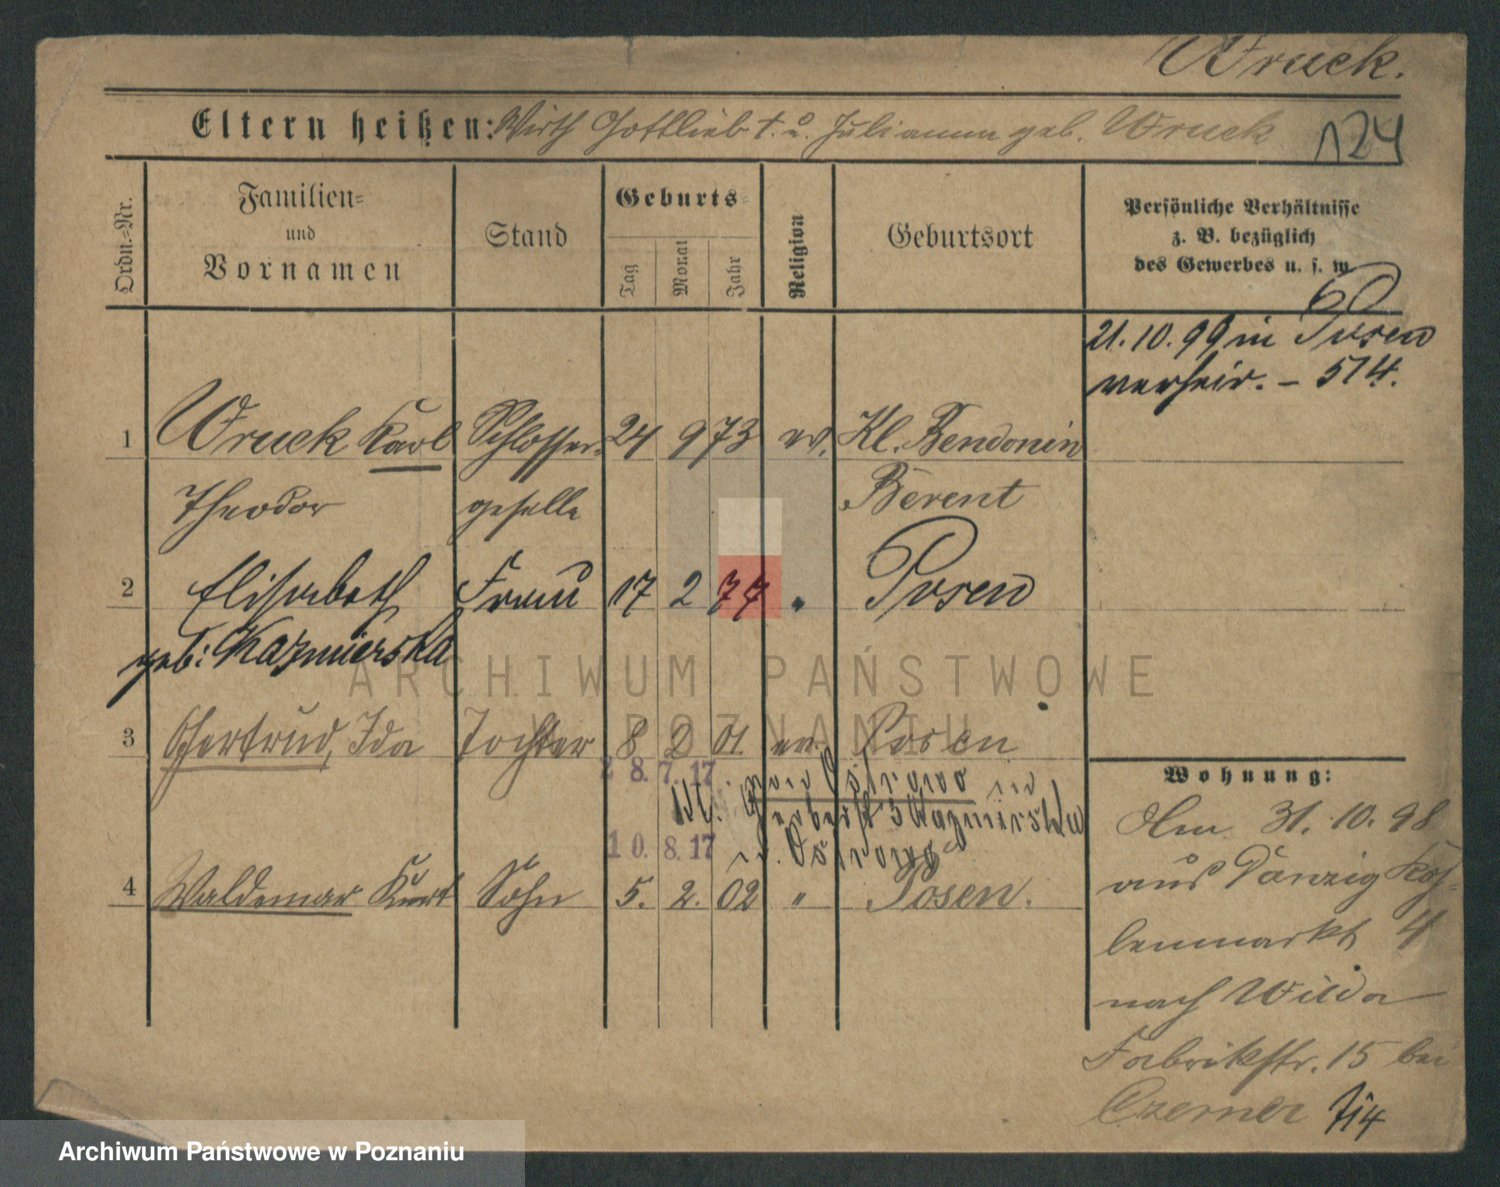 Wruck.
Eltern heißen: Wirth Gottlieb †. u. Julianna geb. Wruck
124
Ordn.-Nr.
Familien-
und
Vornamen
Stand
Geburts-
Tag
Monat
Jahr
Religion
Geburtsort
Persönliche Verhältnisse
z. B. bezüglich
des Gewerbes u. s. w.
21. 10. 99 in Posen
verheir. – 514.
1 Wruck Karl Schlosser- 24 9 73 ev. Kl. Bendomin
Theodor geselle Berent
2 Elisabeth Frau 17 2 77 " Posen
geb: Kazmierska
3 Gertrud, Ida Tochter 8 2 01 ev. Posen
2 8. 7. 17
Kazmierska
1 0. 8. 17
4 Waldemar Kurt Sohn 5. 2. 02 " Posen.
Wohnung:
Am 31. 10. 98
aus Danzig Koh-
lenmarkt 4
nach Wilda
Fabrikstr. 15 bei
Czerner 714
ARCHIWUM PAŃSTWOWE
W POZNANIU
Archiwum Państwowe w Poznaniu